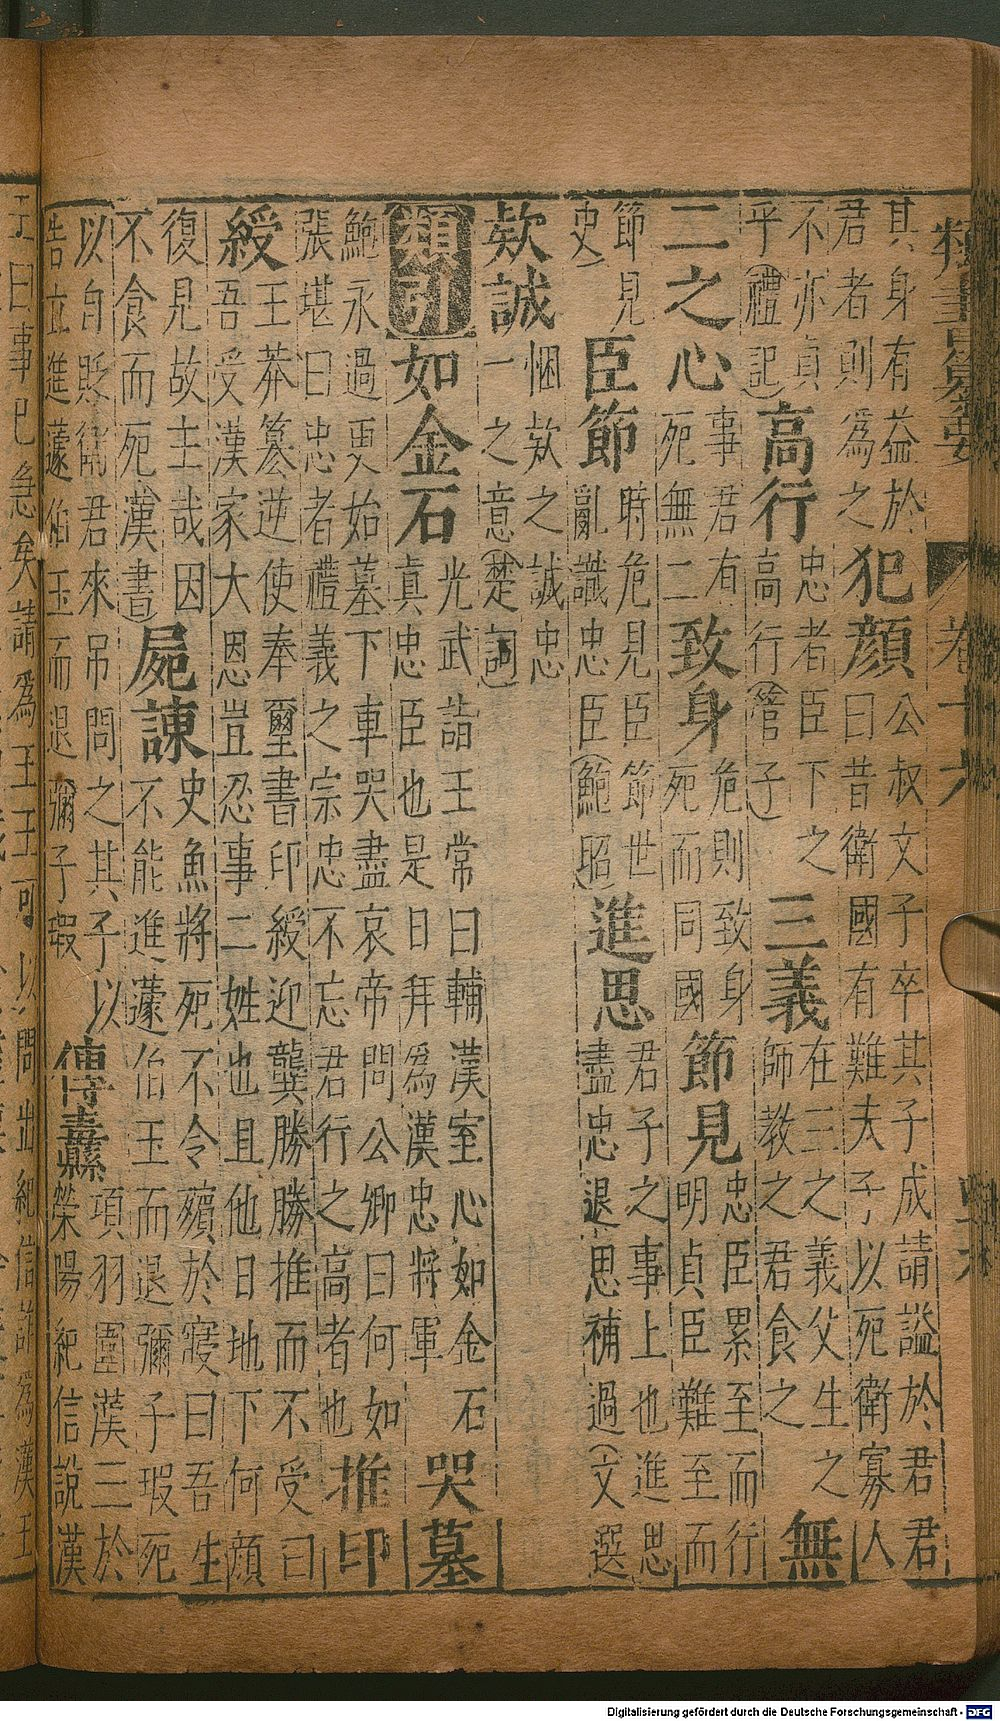 類書纂要 卷十六
其身有益於
君者則為之
犯顏
公叔文子卒其子成請謚於君君
曰昔衛國有難夫子以死衛寡人
不亦貞
乎(禮記)
高行
忠者臣下之
高行(管子)
三義
在三之義父生之
師教之君食之
無
二之心
事君有
死無二
致身
危則致身
死而同國
節見
忠臣累至而行
明貞臣難至而
節見
史)
臣節
時危見臣節世
亂識忠臣(鮑照)
進思
君子之事上也進思
盡忠退思補過(文選
欵誠
悃欵之誠忠
一之意(楚詞)
類引
如金石
光武詣王常曰輔漢室心如金石
真忠臣也是日拜為漢忠將軍
哭墓
鮑永過更始墓下車哭盡哀帝問公卿曰何如
張堪曰忠者禮義之宗忠不忘君行之高者也
推印
綬
王莽篡逆使奉璽書印綬迎龔勝勝推而不受曰
吾受漢家大恩豈忍事二姓也且他日地下何顏
復見故主哉因
不食而死(漢書)
屍諫
史魚將死不令殯於寢曰吾生
不能進蘧伯玉而退彌子瑕死
以自貶衛君來吊問之其子以
告立進蘧伯玉而退彌子瑕
傳纛
項羽圍漢三於
滎陽紀信說漢
王曰事已急矣請為王王可以間出紀信詐為漢王
Digitalisierung gefördert durch die Deutsche Forschungsgemeinschaft - DFG